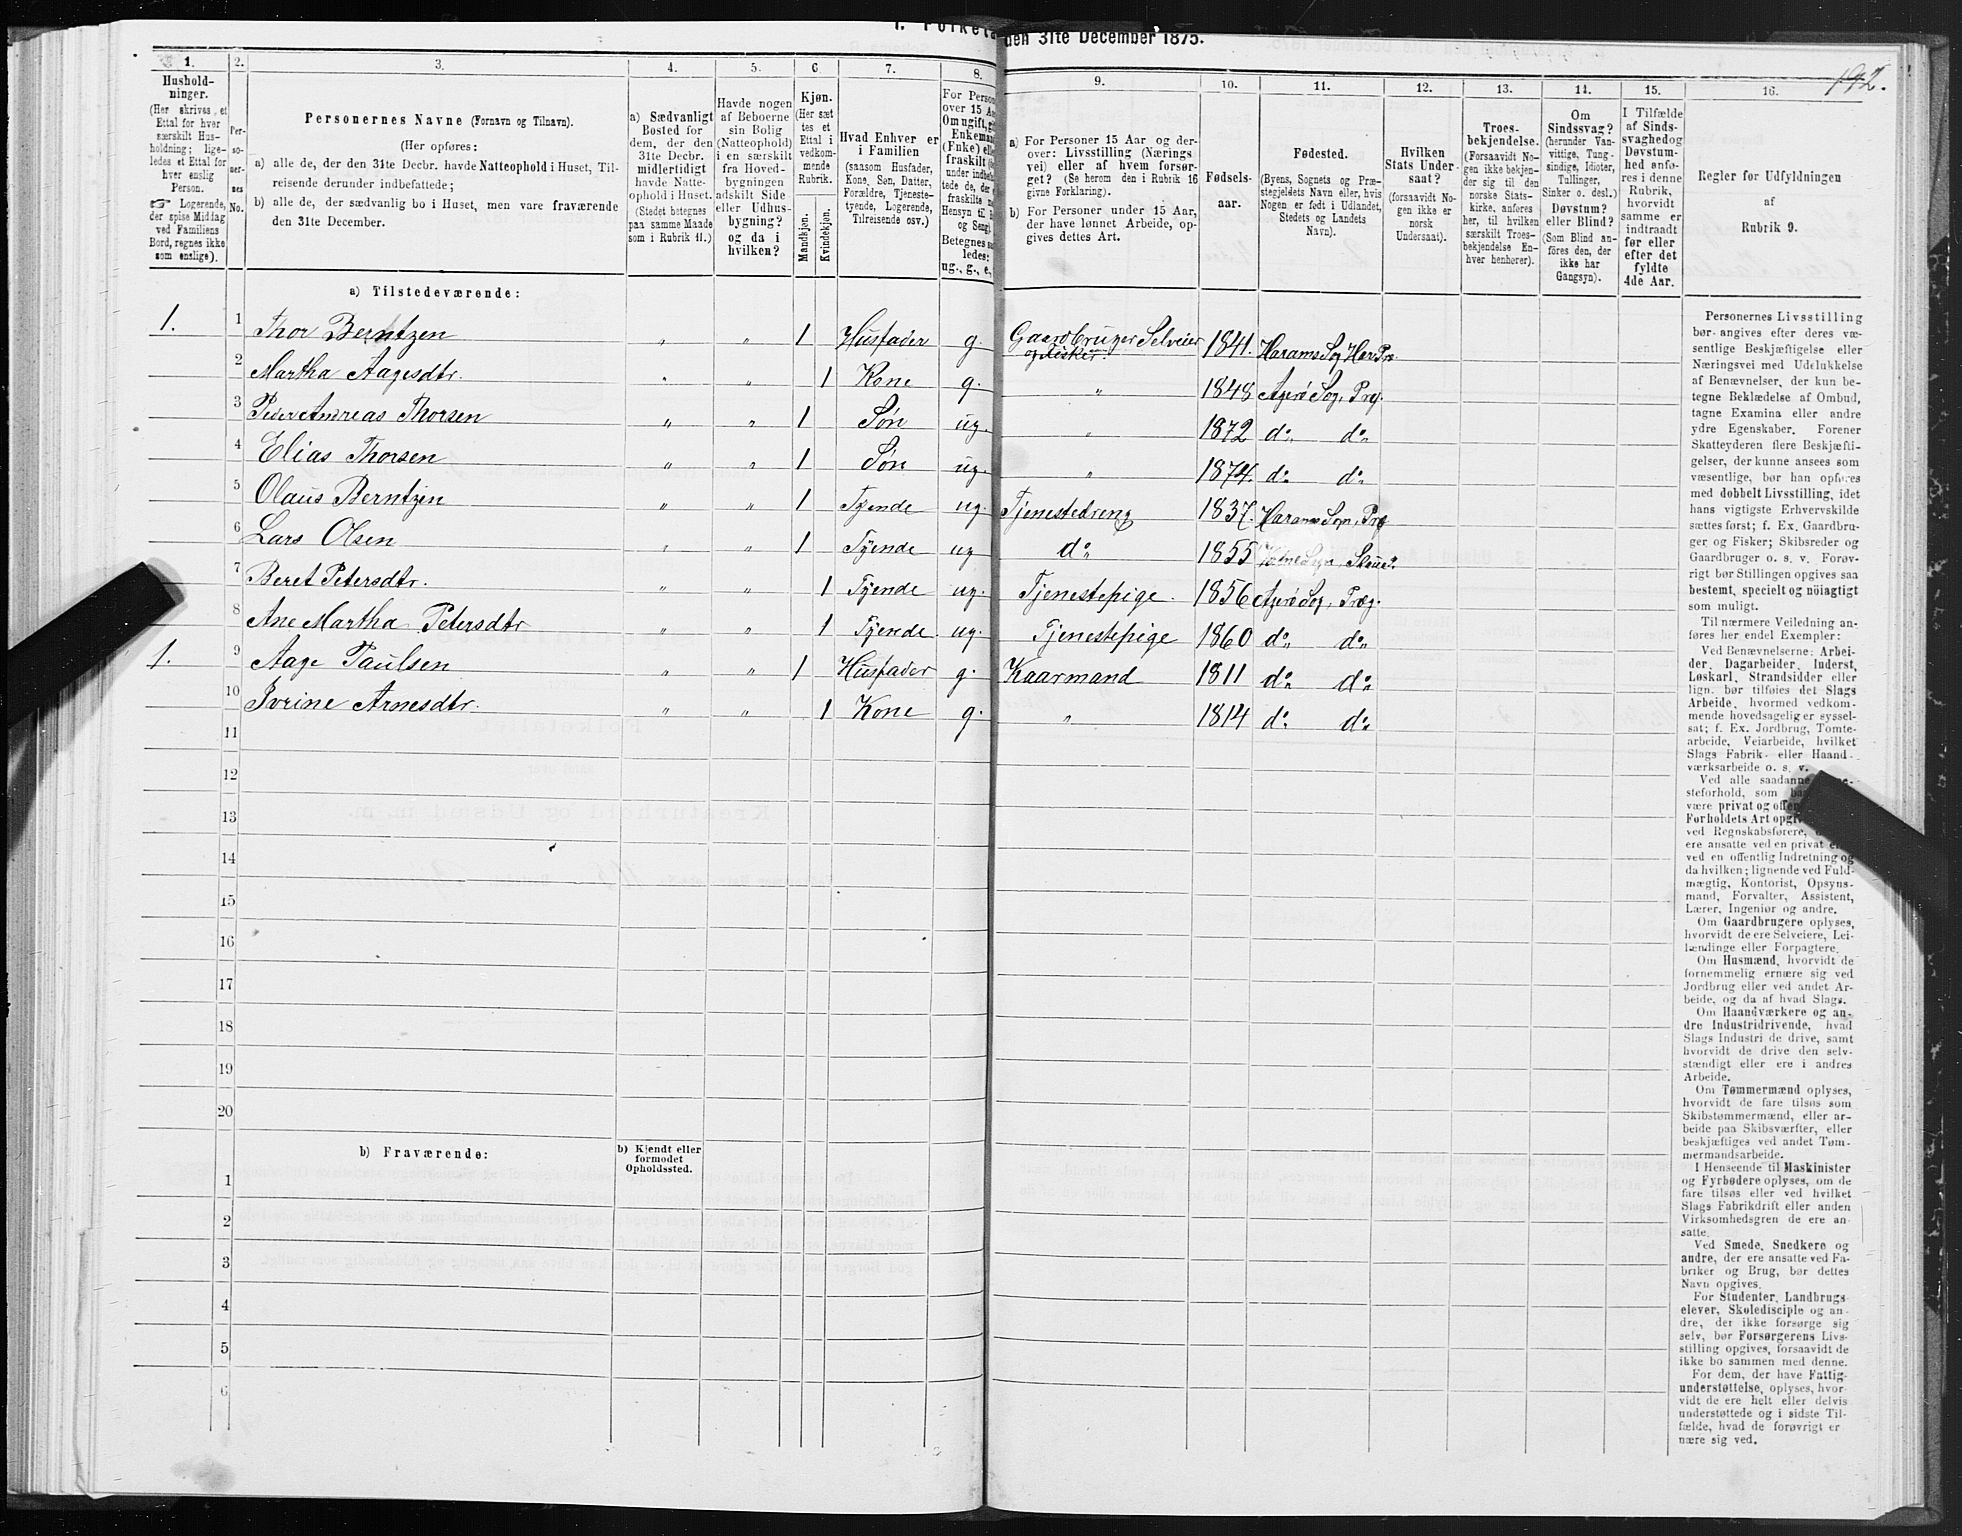 1. Folketæ den 31te December 1875.
192.
1. 2. 3. 4. 5. 6. 7. 8. 9. 10. 11. 12. 13. 14. 15. 16.
Hushold-
ninger.
(Her skrives et
Ettal for hver
særskilt Hus-
holdning; lige-
ledes et Ettal for
hver enslig
Person.
☞ Logerende,
der spise Middag
ved Familiens
Bord, regnes ikke
som enslige).
Per-
so-
ner-
nes
No.
Personernes Navne (Fornavn og Tilnavn).
(Her opføres:
a) alle de, der den 31te Decbr. havde Natteophold i Huset, Til-
reisende derunder indbefattede;
b) alle de, der sædvanlig bo i Huset, men vare fraværende
den 31te December.
a) Sædvanligt
Bosted for
dem, der den
31te Decbr.
midlertidigt
havde Natte-
ophold i Huset.
(Stedet betegnes
paa samme Maade
som i Rubrik 11.)
Havde nogen
af Beboerne
sin Bolig
(Natteophold)
i en særskilt
fra Hoved-
bygningen
adskilt Side
eller Udhus-
bygning?
og da i
hvilken?
Kjøn.
(Her sæt
tes et
Ettal i
vedkom-
mende
Rubrik.
Mandkjøn.
Kvindekjøn.
Hvad Enhver er
i Familien
(saasom Husfader,
Kone, Søn, Datter,
Forældre, Tjeneste-
tyende, Logerende,
Tilreisende osv.)
For Person
over 15 Aa
Om ugift, gi
Enkeman
(Enke) elle
fraskilt (
under indbefat
tede de, der e
fraskilte m
Hensyn til B
og Seng).
Betegnes sa
ledes:
ug., g., e.,
a) For Personer 15 Aar og der-
over: Livsstilling (Nærings
vei) eller af hvem forsør-
get? (Se herom den i Rubrik 16
givne Forklaring).
b) For Personer under 15 Aar,
der have lønnet Arbeide, op-
gives dettes Art.
Fødsels-
aar.
Fødested.
(Byens, Sognets og Præ-
stegjeldets Navn eller, hvis
Nogen er født i Udlandet,
Stedets og Landets
Navn).
Hvilken
Stats Under-
saat?
(forsaavidt No-
gen ikke er
norsk
Undersaat).
Troes-
bekjendelse.
(Forsaavidt No-
gen ikke bekjen-
der sig til den
norske Stats-
kirke, anføres
her, til hvilken
særskilt Troes-
bekjendelse En-
hver henhører).
Om
Sindssvag?
(herunder Van-
vittige, Tung-
sindige, Idioter,
Tullinger,
Sinker o. desl.)
Døvstum?
eller Blind?
(Som Blind an-
føres den, der
ikke har
Gangsyn).
I Tilfælde
af Sinds-
svaghed og
Døvstum-
hed anfø-
res i denne
Rubrik,
hvorvidt
samme er
indtraadt
før eller
efter det
fyldte
4de Aar.
Regler for Udfyldningen
af
Rubrik 9.
a) Tilstedeværende:
1. 1 Thor Berntzen " " 1 Husfader g. Gaardbruger Selveier og Fisker. 1841. Harams Sog Har Pr.
2 Martha Aagesdtr. " " 1 Kone g. " 1848 Agerø Sog, Prg.
3 Peder Andreas Thorsen " " 1 Søn ug. " 1872 do do
4 Elias Thorsen " " 1 Søn ug. " 1874. do do
5 Olaus Berntzen " " 1 Tyende ug. Tjenestedreng 1837. Harams Sogn, Prg
6 Lars Olsen " " 1 Tyende ug do 1855 Sogn,
7 Beret Petersdtr. " " 1 Tyende ug. Tjenestepige. 1856 Agerø Sog, Præg.
8 Ane Martha Petersdtr " " 1 Tyende. ug. Tjenestepige 1860 do do
1. 9 Aage Paulsen " " 1 Husfader g. Kaarmand 1811 do do
10 Ivrine Arnesdtr. " " 1 Kone g. " 1814 do do
11
12
13
14
15
16
17
18
19
20
b) Fraværende:
b) Kjendt eller
formodet
Opholdssted.
1
2
3
4
5
6
Personernes Livsstilling
bør angives efter deres væ-
sentlige Beskjæftigelse eller
Næringsvei med Udelukkelse
af Benævnelser, der kun be-
tegne Beklædelse af Ombud,
tagne Examina eller andre
ydre Egenskaber. Forener
Skatteyderen flere Beskjæfti-
gelser, der kunne ansees som
væsentlige, bør han opføres
med dobbelt Livsstilling, idet
hans vigtigste Erhvervskilde
sættes først; f. Ex. Gaardbru-
ger og Fisker; Skibsreder og
Gaardbruger o. s. v. Forøv-
rigt bør Stillingen opgives saa
bestemt, specielt og nöiagtigt
som muligt.
Til nærmere Veiledning an-
føres her endel Exempler:
Ved Benævnelserne: Arbei-
der, Dagarbeider, Inderst,
Løskarl, Strandsidder eller
lign. bør tilføies det Slags
Arbeide, hvormed vedkom-
mende hovedsagelig er syssel-
sat; f. Ex. Jordbrug, Tomte-
arbeide, Veiarbeide, hvilket
Slags Fabrik- eller Haand-
værksarbeide o. s. v.
Ved alle saadanne
steforhold, som
være privat og
Forholdets Art
ved Regnskabsførere,
ere ansatte ved en privat
ved en offentlig Indretning og
da hvilken; lignende ved Fuld-
mægtig, Kontorist, Opsyns-
mand, Forvalter, Assistent,
Lærer, Ingeniør og andre.
Om Gaardbrugere oplyses,
hvorvidt de ere Selveiere, Lei-
lændinge eller Forpagtere.
Om Husmænd, hvorvidt de
fornemmelig ernære sig ved
Jordbrug eller ved andet Ar-
beide, og da af hvad Slags.
Om Haandværkere og an-
dre Industridrivende, hvad
Slags Industri de drive, samt
hvorvidt de drive den selv-
stændigt eller ere i andres
Arbeide.
Om Tømmermænd oplyses,
hvorvidt de fare tilsøs som
Skibstømmermænd, eller ar-
beide paa Skibsværfter, eller
beskjæftiges ved andet Tøm-
mermandsarbeide.
I Henseende til Maskinister
og Fyrbødere oplyses, om de
fare tilsøs eller ved hvilket
Slags Fabrikdrift eller anden
Virksomhedsgren de ere an-
satte.
Ved Smede, Snedkere og
andre, der ere ansatte ved Fa-
briker og Brug, bør dettes
Navn opgives.
For Studenter, Landbrugs
elever, Skoledisciple og an-
dre, der ikke forsørge sig
selv, bør Forsørgerens Livs-
stilling opgives, forsaavidt de
ikke bo sammen med denne.
For dem, der have Fattig-
understøttelse, oplyses, hvor-
vidt de ere helt eller delvis
understøttede og i sidste Til-
fælde, hvad de forøvrigt er-
nære sig ved.